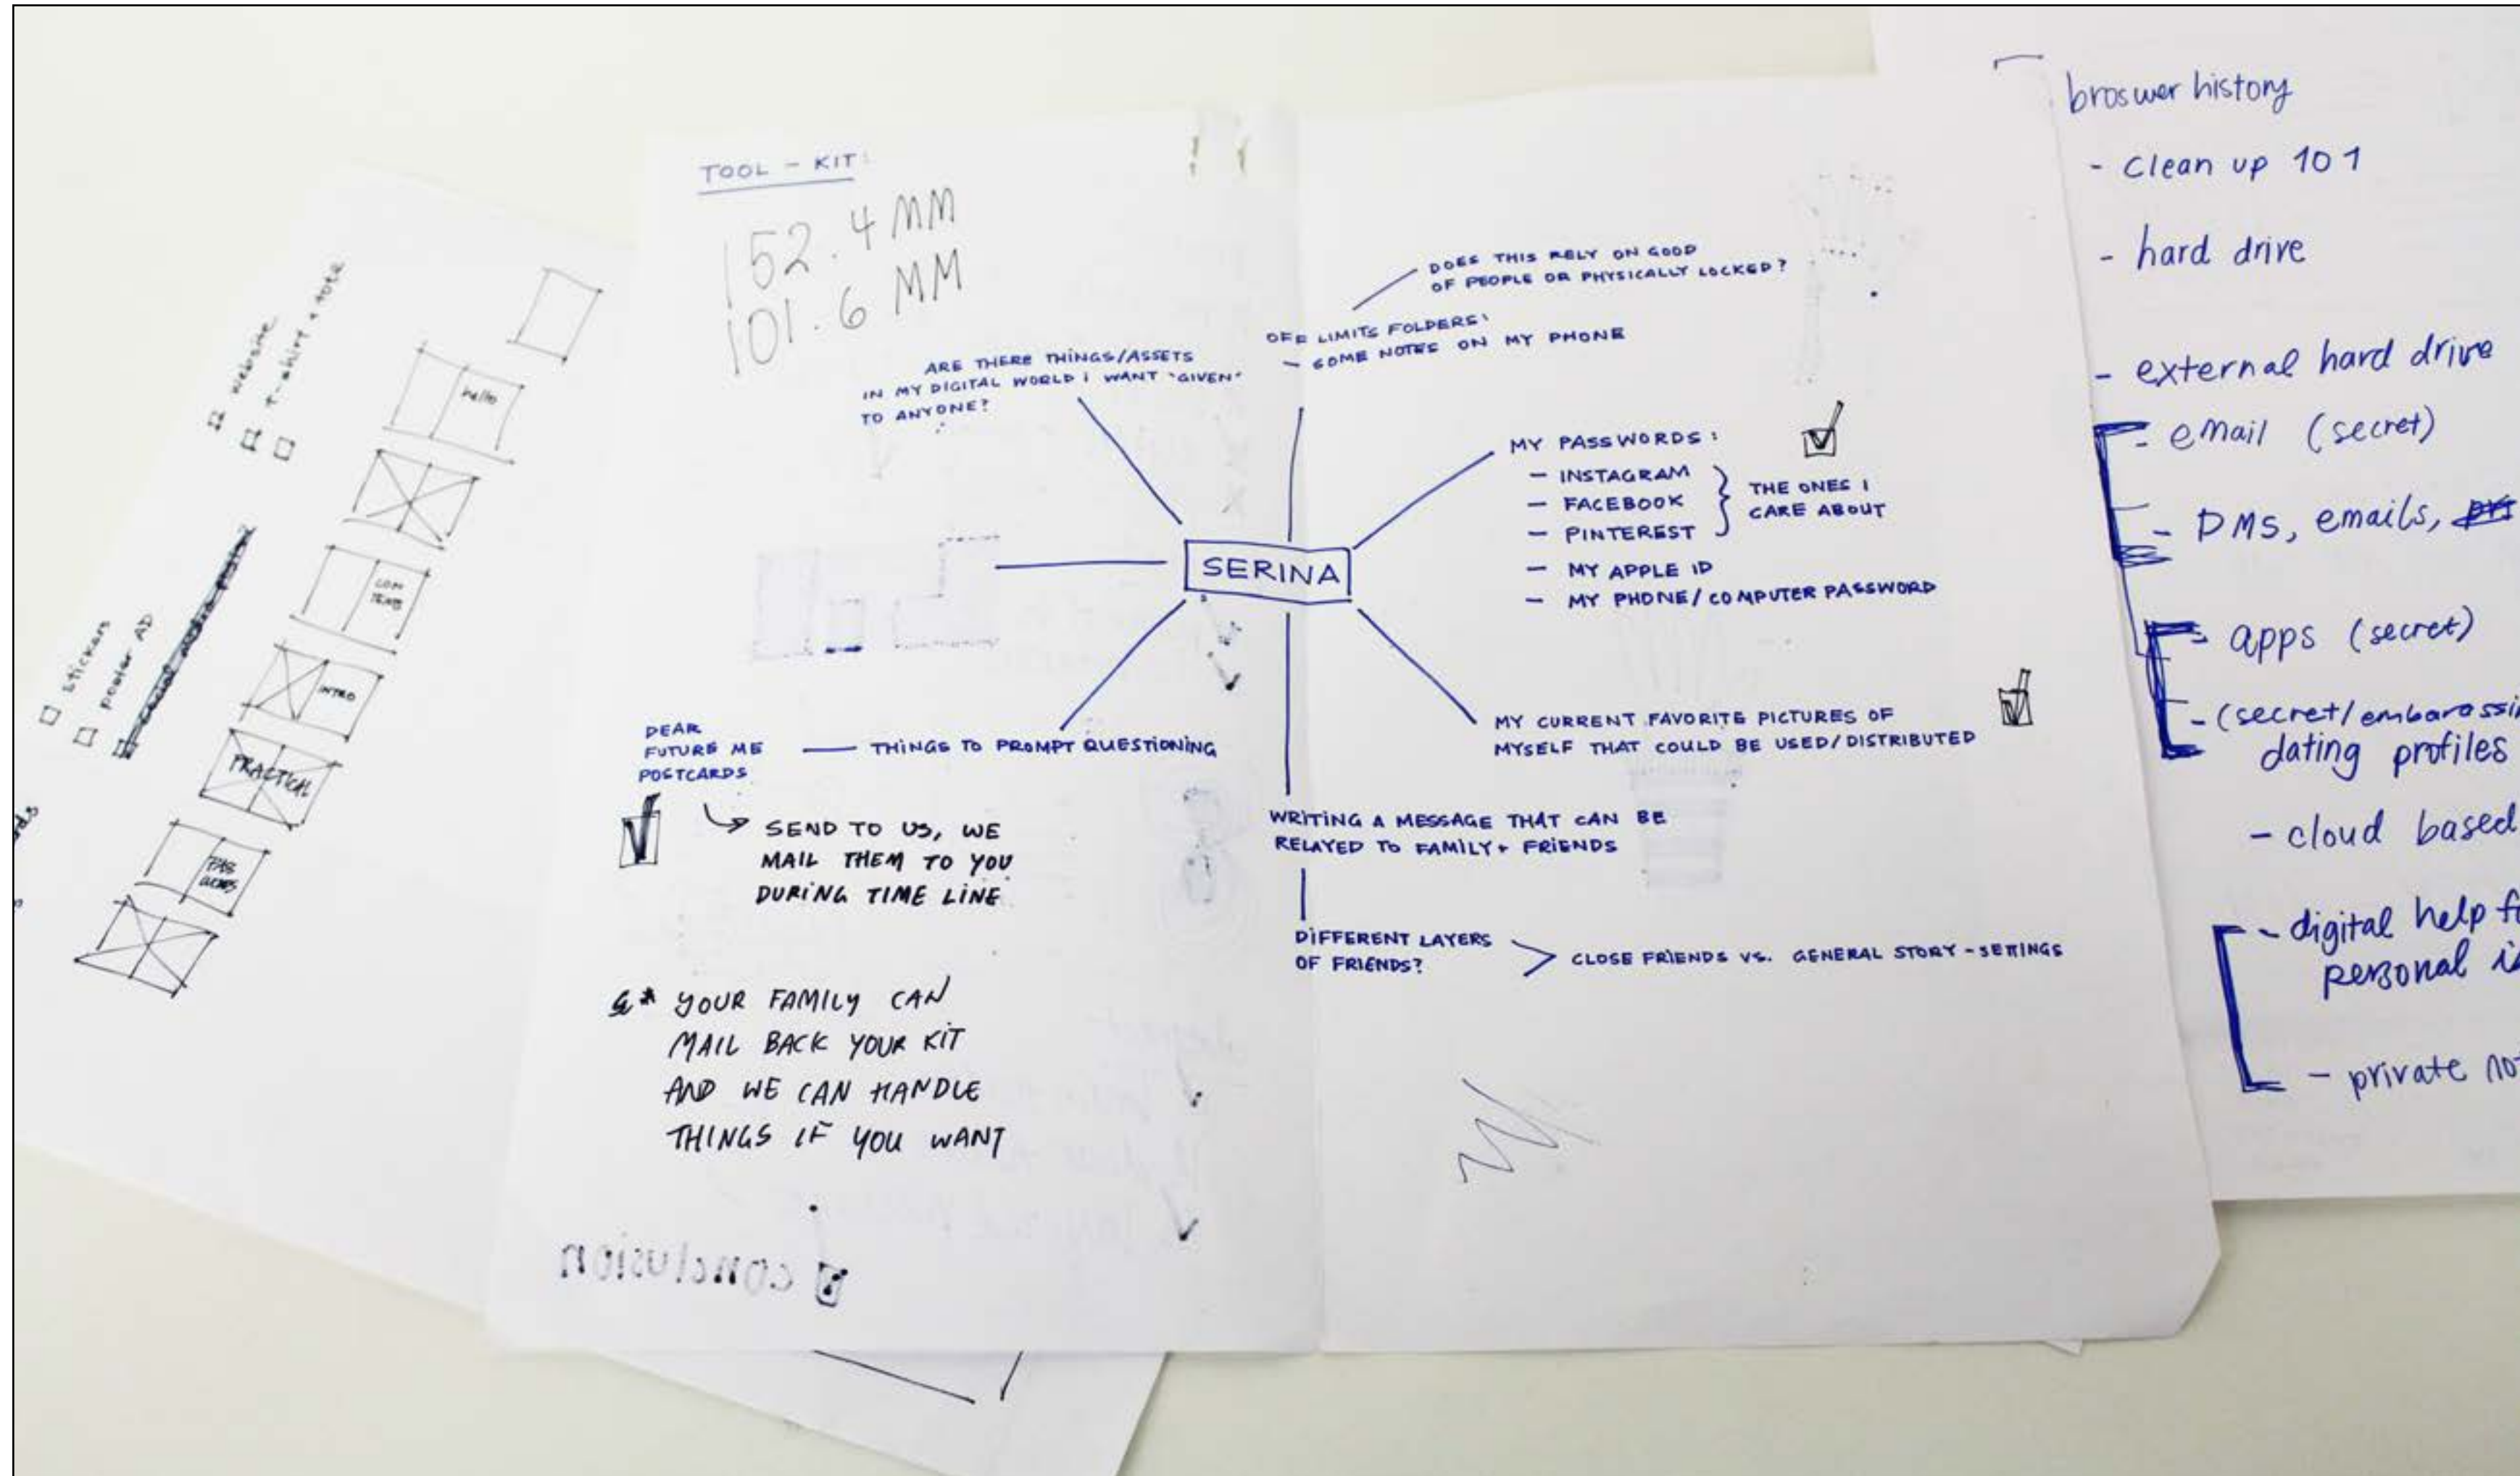 website
t-shirt + tote
stickers
poster AD
hello
CON
TENTS
INTRO
PRACTICAL
PAS
WORDS
TOOL - KIT:
152.4 MM
101.6 MM
ARE THERE THINGS/ASSETS
IN MY DIGITAL WORLD I WANT "GIVEN"
TO ANYONE?
DOES THIS RELY ON GOOD
OF PEOPLE OR PHYSICALLY LOCKED?
OFF LIMITS FOLDERS:
- SOME NOTES ON MY PHONE
MY PASSWORDS:
- INSTAGRAM
- FACEBOOK
- PINTEREST
THE ONES I
CARE ABOUT
- MY APPLE ID
- MY PHONE/COMPUTER PASSWORD
SERINA
MY CURRENT FAVORITE PICTURES OF
MYSELF THAT COULD BE USED/DISTRIBUTED
DEAR
FUTURE ME
POSTCARDS
THINGS TO PROMPT QUESTIONING
SEND TO US, WE
MAIL THEM TO YOU
DURING TIME LINE
WRITING A MESSAGE THAT CAN BE
RELAYED TO FAMILY + FRIENDS
DIFFERENT LAYERS
OF FRIENDS?
CLOSE FRIENDS VS. GENERAL STORY - SETTINGS
* YOUR FAMILY CAN
MAIL BACK YOUR KIT
AND WE CAN HANDLE
THINGS IF YOU WANT
conclusion
broswer history
- clean up 101
- hard drive
- external hard drive
- email (secret)
- DMS, emails,
- apps (secret)
- (secret/embarassin
dating profiles
- cloud based
- digital help f
personal i
- private no